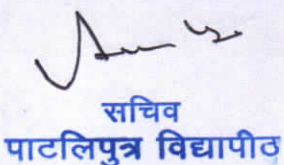 सचिव
पाटलिपुत्र विद्यापीठ